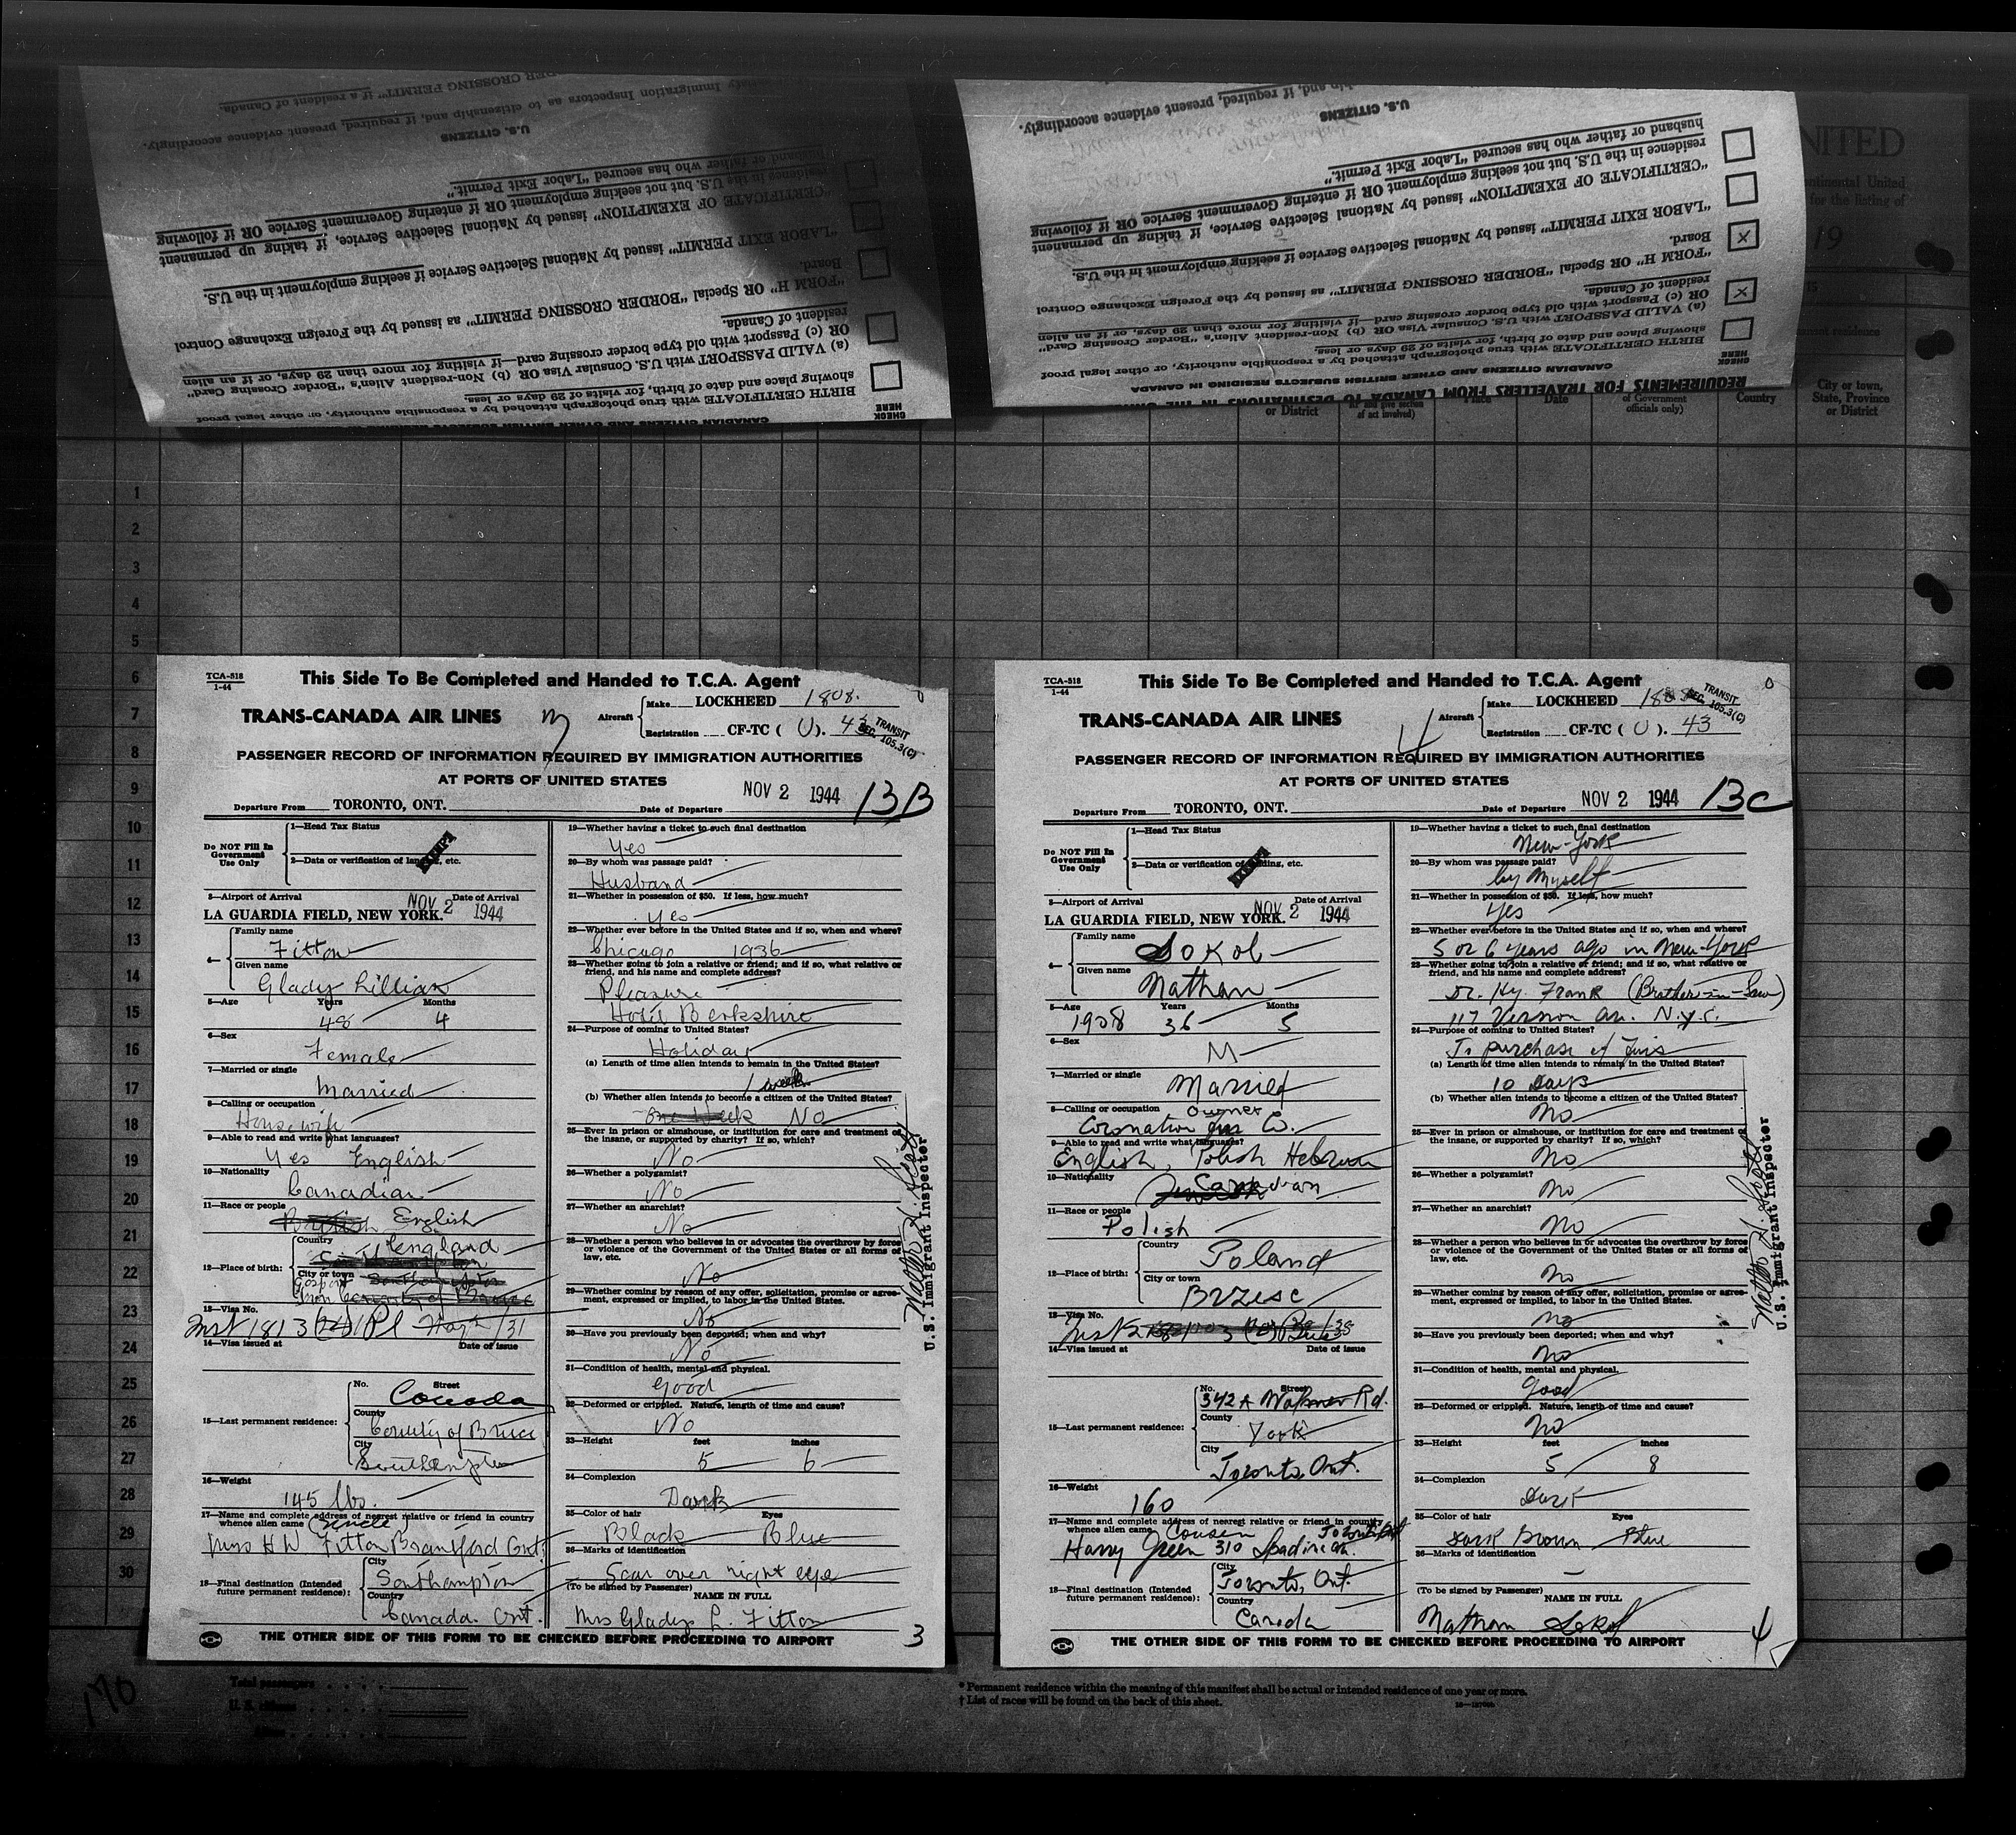 CHECK HERE
BIRTH CERTIFICATE with true photograph attached by a responsible authority, or other legal proof
showing place and date of birth, for visits of 29 days or less.
(a) VALID PASSPORT with U.S. Consular Visa OR (b) Non-resident Alien's "Border Crossing Card"
OR (c) Passport with old type border crossing card—if visiting for more than 29 days, or if an alien
resident of Canada.
"FORM H" OR Special "BORDER CROSSING PERMIT" as issued by the Foreign Exchange Control
Board.
"LABOR EXIT PERMIT" issued by National Selective Service if seeking employment in the U.S.
"CERTIFICATE OF EXEMPTION" issued by National Selective Service, if taking up permanent
residence in the U.S. but not seeking employment OR if entering Government Service OR if following
husband or father who has secured "Labor Exit Permit."
U.S. CITIZENS
Immigration Inspectors as to citizenship and, if required, present evidence accordingly.
CROSSING PERMIT" if a resident of Canada.
REQUIREMENTS FOR TRAVELLERS FROM CANADA TO DESTINATIONS IN THE
CANADIAN CITIZENS AND OTHER BRITISH SUBJECTS RESIDING IN CANADA
CHECK HERE
BIRTH CERTIFICATE with true photograph attached by a responsible authority, or other legal proof
showing place and date of birth, for visits of 29 days or less.
(a) VALID PASSPORT with U.S. Consular Visa OR (b) Non-resident Alien's "Border Crossing Card"
OR (c) Passport with old type border crossing card—if visiting for more than 29 days, or if an alien
resident of Canada.
X
"FORM H" OR Special "BORDER CROSSING PERMIT" as issued by the Foreign Exchange Control
Board.
X
"LABOR EXIT PERMIT" issued by National Selective Service if seeking employment in the U.S.
"CERTIFICATE OF EXEMPTION" issued by National Selective Service, if taking up permanent
residence in the U.S. but not seeking employment OR if entering Government Service OR if following
husband or father who has secured "Labor Exit Permit."
U.S. CITIZENS
and, if required, present evidence accordingly.
NITED
ontinental United
for the listing of
19
City or town,
State, Province
or District
Country
or District
Place
Date
of Government
officials only)
1
2
3
4
5
6
7
8
9
10
11
12
13
14
15
16
17
18
19
20
21
22
23
24
25
26
27
28
29
30
TCA-518
1-44
This Side To Be Completed and Handed to T.C.A. Agent
TRANS-CANADA AIR LINES
3
Aircraft
Make LOCKHEED 1808.
Registration CF-TC ( U ). 43
TRANSIT
SEC. 105.3(C)
PASSENGER RECORD OF INFORMATION REQUIRED BY IMMIGRATION AUTHORITIES
AT PORTS OF UNITED STATES
Departure From TORONTO, ONT. Date of Departure NOV 2 1944 13B
Do NOT Fill In
Government
Use Only
1—Head Tax Status
2—Data or verification of landing, etc.
EXEMPT
3—Airport of Arrival Date of Arrival
LA GUARDIA FIELD, NEW YORK. NOV 2 1944
4—
Family name
Fitton
Given name
Glady Lillian
5—Age Years Months
48 4
6—Sex
Female
7—Married or single
Married
8—Calling or occupation
Housewife
9—Able to read and write what languages?
Yes English
10—Nationality
Canadian
11—Race or people
British English
12—Place of birth:
Country
England
City or town
Gosport
13—Visa No.
14—Visa issued at Date of issue
15—Last permanent residence:
No. Street
Canada
County
County of Bruce
City
Southampton
16—Weight
145 lbs.
17—Name and complete address of nearest relative or friend in country
whence alien came (Uncle)
Mrs H W Fitton Brantford Ont.
18—Final destination (Intended
future permanent residence):
City
Southampton
Country
Canada. Ont.
19—Whether having a ticket to such final destination
Yes
20—By whom was passage paid?
Husband
21—Whether in possession of $50. If less, how much?
Yes
22—Whether ever before in the United States and if so, when and where?
Chicago 1936
23—Whether going to join a relative or friend; and if so, what relative or
friend, and his name and complete address?
Pleasure
Hotel Berkshire
24—Purpose of coming to United States?
Holiday
(a) Length of time alien intends to remain in the United States?
1 week
(b) Whether alien intends to become a citizen of the United States?
One Week No
25—Ever in prison or almshouse, or institution for care and treatment of
the insane, or supported by charity? If so, which?
No
26—Whether a polygamist?
No
27—Whether an anarchist?
No
28—Whether a person who believes in or advocates the overthrow by force
or violence of the Government of the United States or all forms of
law, etc.
No
29—Whether coming by reason of any offer, solicitation, promise or agree-
ment, expressed or implied, to labor in the United States.
No
30—Have you previously been deported; when and why?
No
31—Condition of health, mental and physical.
Good
32—Deformed or crippled. Nature, length of time and cause?
No
33—Height feet inches
5 6
34—Complexion
Dark
35—Color of hair Eyes
Black Blue
36—Marks of identification
Scar over right eye
(To be signed by Passenger) NAME IN FULL
Mrs Gladys L. Fitton
U.S. Immigrant Inspector
THE OTHER SIDE OF THIS FORM TO BE CHECKED BEFORE PROCEEDING TO AIRPORT
3
TCA-518
1-44
This Side To Be Completed and Handed to T.C.A. Agent
TRANS-CANADA AIR LINES
4
Aircraft
Make LOCKHEED 1808
Registration CF-TC ( U ). 43
TRANSIT
SEC. 105.3(C)
PASSENGER RECORD OF INFORMATION REQUIRED BY IMMIGRATION AUTHORITIES
AT PORTS OF UNITED STATES
Departure From TORONTO, ONT. Date of Departure NOV 2 1944 13C
Do NOT Fill In
Government
Use Only
1—Head Tax Status
2—Data or verification of landing, etc.
EXEMPT
3—Airport of Arrival Date of Arrival
LA GUARDIA FIELD, NEW YORK. NOV 2 1944
4—
Family name
Sokol
Given name
Nathan
5—Age Years Months
1908 36 5
6—Sex
M
7—Married or single
Married
8—Calling or occupation owner
Coronation Fur Co.
9—Able to read and write what languages?
English, Polish Hebrew
10—Nationality
Canadian
11—Race or people
Polish
12—Place of birth:
Country
Poland
City or town
Brzesc
13—Visa No.
14—Visa issued at Date of issue
15—Last permanent residence:
No. Street
342A Walmer Rd.
County
York
City
Toronto, Ont.
16—Weight
160
17—Name and complete address of nearest relative or friend in country
whence alien came Cousen Toronto Ont
Harry Green 310 Spadina av.
18—Final destination (Intended
future permanent residence):
City
Toronto, Ont.
Country
Canada
19—Whether having a ticket to such final destination
New-York
20—By whom was passage paid?
by Myself
21—Whether in possession of $50. If less, how much?
Yes
22—Whether ever before in the United States and if so, when and where?
5 or 6 years ago in New-York
23—Whether going to join a relative or friend; and if so, what relative or
friend, and his name and complete address?
Dr. Hy. Frank (Brother-in-Law)
117 Vernon av. N.Y.C.
24—Purpose of coming to United States?
To purchase of Furs
(a) Length of time alien intends to remain in the United States?
10 Days
(b) Whether alien intends to become a citizen of the United States?
No
25—Ever in prison or almshouse, or institution for care and treatment of
the insane, or supported by charity? If so, which?
No
26—Whether a polygamist?
No
27—Whether an anarchist?
No
28—Whether a person who believes in or advocates the overthrow by force
or violence of the Government of the United States or all forms of
law, etc.
No
29—Whether coming by reason of any offer, solicitation, promise or agree-
ment, expressed or implied, to labor in the United States.
No
30—Have you previously been deported; when and why?
No
31—Condition of health, mental and physical.
Good
32—Deformed or crippled. Nature, length of time and cause?
No
33—Height feet inches
5 8
34—Complexion
Dark
35—Color of hair Eyes
Dark Brown Blue
36—Marks of identification
—
(To be signed by Passenger) NAME IN FULL
Nathan Sokol
U.S. Immigrant Inspector
THE OTHER SIDE OF THIS FORM TO BE CHECKED BEFORE PROCEEDING TO AIRPORT
4
170
Total passengers
U. S. citizens
Aliens
* Permanent residence within the meaning of this manifest shall be actual or intended residence of one year or more.
† List of races will be found on the back of this sheet.